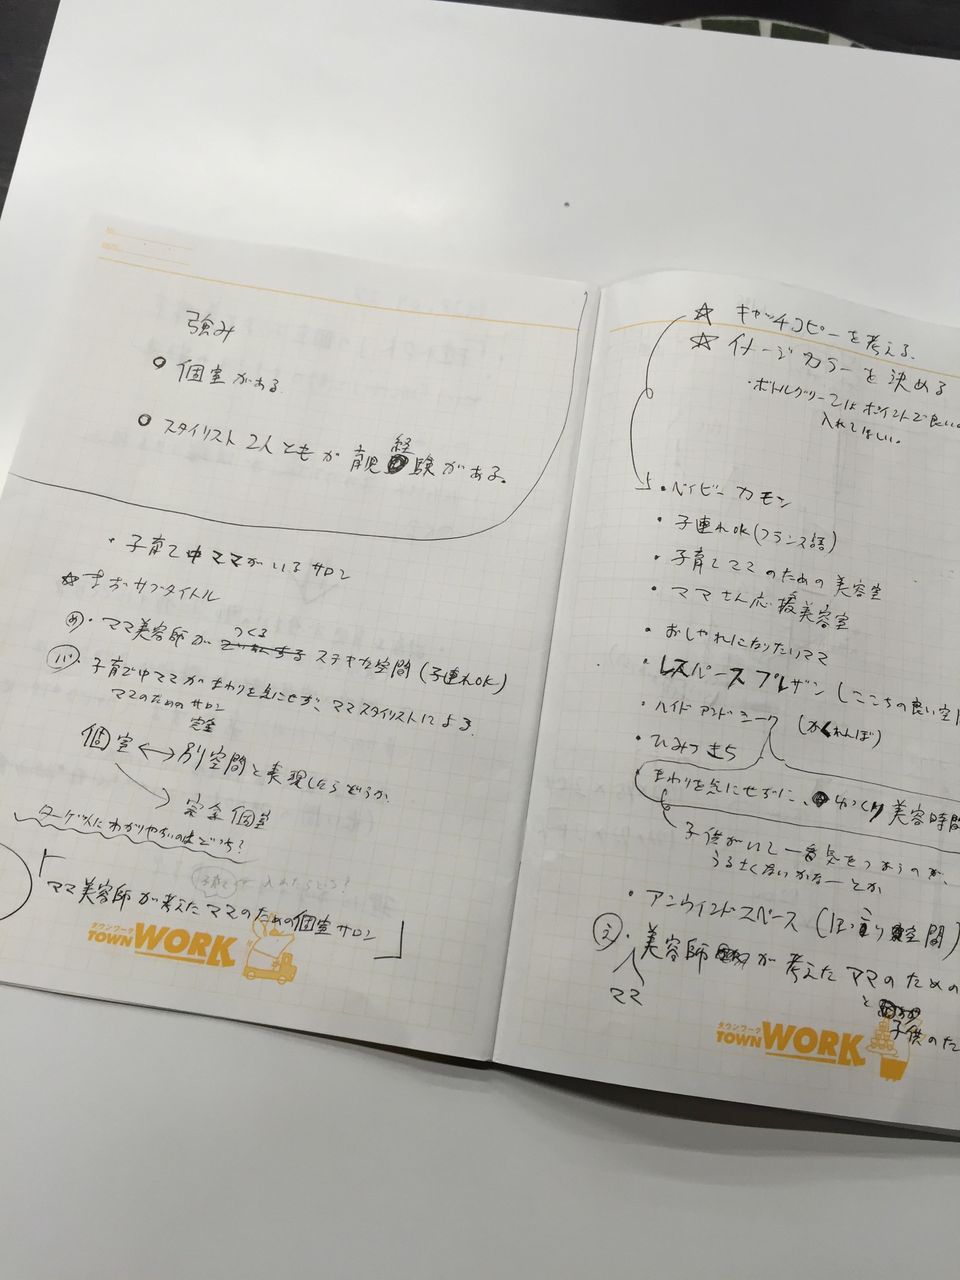 強み
個室がある
スタイリスト2人ともが育児経験がある。
・子育て中ママがいるサロン
☆まずサブタイトル
め・ママ美容師がつくるステキな空間(子連れOK)
バ・子育て中ママがまわりを気にせず、ママスタイリストによる
ママのためのサロン
完全
個室↔別空間と表現したらどうか
完全個室
ターゲットにわかりやすいのはどっち?
入れたらどう?
「ママ美容師が考えたママのための個室サロン」
タウンワーク
TOWN WORK
☆キャッチコピーを考える。
☆イメージカラーを決める
・ボトルグリーンはポイントで良い
入れてほしい。
・ベイビーカモン
・子連れOK(フランス語)
・子育てママのための美容室
・ママさん応援美容室
・おしゃれになりたいママ
・レスパースプレザン(ここちの良い空
・ハイドアンドシーク(かくれんぼ)
・ひみつきち
・まわりを気にせずに、ゆっくり美容時間
子供がいて一番気をつかうのが、
うるさくないかなーとか
・アンワインドスペース(ほっこり空間)
え・美容師が考えたママのための
ママ
と
子供のた
タウンワーク
TOWN WORK